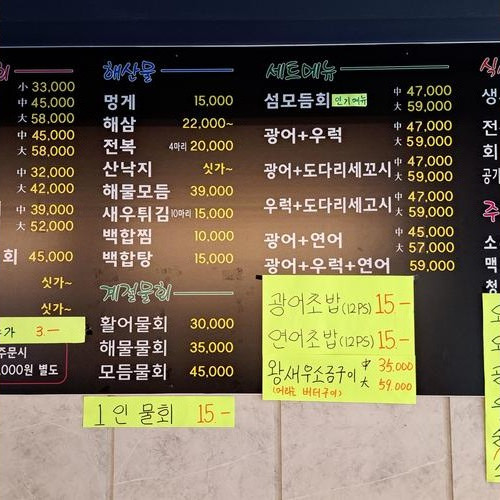 회
小 33,000
中 45,000
大 58,000
中 45,000
大 58,000
中 32,000
大 42,000
中 39,000
大 52,000
회 45,000
싯가~
싯가~
가 3.-
주문시
,000원 별도
해산물
멍게 15,000
해삼 22,000~
전복 4마리 20,000
산낙지 싯가~
해물모듬 39,000
새우튀김 10마리 15,000
백합찜 10,000
백합탕 15,000
계절물회
활어물회 30,000
해물물회 35,000
모듬물회 45,000
1인 물회 15.-
세트메뉴
섬모듬회 인기메뉴 中 47,000
大 59,000
광어+우럭 中 47,000
大 59,000
광어+도다리세꼬시 中 47,000
大 59,000
우럭+도다리세고시 中 47,000
大 59,000
광어+연어 中 45,000
大 57,000
광어+우럭+연어 59,000
광어초밥(12PS) 15.-
연어초밥(12PS) 15.-
왕새우소금구이 中 35.000
(머리는 버터구이) 大 59.000
식
생
전
회
공기
주
소
맥
청